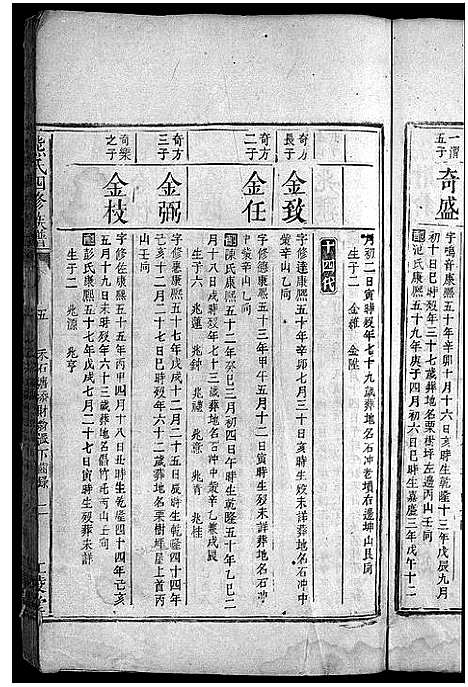 一渭
五子
奇盛
字鳴音康熙五十年辛卯十月十三年戊辰九月
初十日巳時歿年三十七歲葬地名栗樹坪左邊丙山壬向
配池氏康熙五十九年庚子四月初六日巳時生嘉慶三年戊午十二
月初二日寅時歿年七十九歲葬地名石冲老墳右邊坤山艮向
生子二 金維 金陞
十四代
奇方
長子
金致
字修達康熙五十年辛卯七月三十日亥時生歿葬地名石冲中
業辛山乙向
奇方
二子
金任
字修德康熙五十三年甲午五月十二日寅時生歿未詳葬地名石冲
中業辛山乙向
配陳氏康熙五十二年癸巳三月初四日午時生乾隆五十年乙巳二
月十八日戌時歿葬地名石冲中業辛乙兼戌辰
生子六 兆蓮 兆鐘 兆禧 兆意 兆肖 兆桂
奇方
三子
金弼
字修惠康熙五十七年戊戌十二月二十五日辰時生乾隆四十四年
己亥十二月二十七日巳時歿年六十二歲葬地名栗樹坪屋上首丙
山壬向
奇樂
之子
金枝
字修佐康熙五十八年丙申四月十八日丑時生乾隆四十四年己亥
五月十九日未時歿年六十三歲葬地名昌竹毛丙山壬向
配彭氏康熙五十七年戊戌七月二十七日寅時生歿葬未詳
生子二 兆源 兆亨
氏四修族譜
五